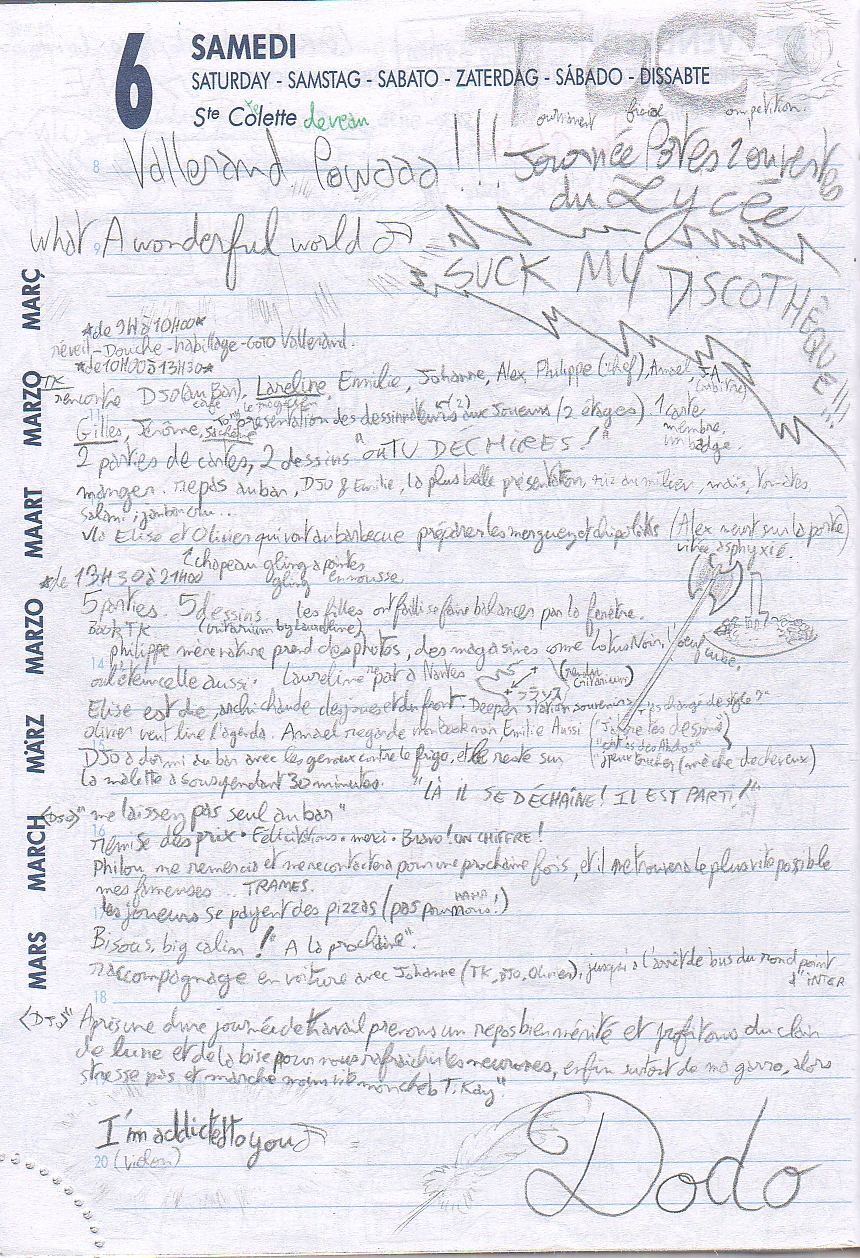 6 SAMEDI
SATURDAY - SAMSTAG - SABATO - ZATERDAG - SÁBADO - DISSABTE
Ste Colette de veau
TFC
ournament freial ompetition.
Vallerand Powaaa !!! Journée Portes ouvertes
du Lycée
what A wonderful world
SUCK MY DISCOTHÈQUE!!!
MARS MARCH MÄRZ MARZO MAART MARZO MARÇ
*de 9H à 10H00*
réveil-Douche-habillage-GOTO Vallerand.
*de 10H00 à 13H30*
TK rencontre DJO (au Bar), Laureline, Emilie, Johanne, Alex Philippe (chef), Amael J.A (arbitre)
café
Gilles, Jérôme, présentation des dessinateurs aux joueurs (2 étages). 1 carte membre, un badge.
2 parties de cartes, 2 dessins "ouTU DECHIRES!"
manger. repas au bar, DJO & Emilie, la plus belle présentation, riz au milier, mais, tomates
salami, jambon cru...
Vla Elise et Olivier qui vont au barbecue préparer les merguez et chipolatas (Alex meurt sur la porte)
vitrée asphyxié.
1 chapeau gling à pointes
gling en mousse
*de 13H30 à 21H00
5 parties. 5 dessins. les filles ont failli se faire balancer par la fenêtre.
Book TK (critarium by Laureline)
philippe mère ratine prend des photos, des magasines come Lotus Noir, l'oeuf cube,
oul étincelle aussi. Laureline part à Nantes (rendu critarium)
フランス
Elise est die, archi chaude des joues et du front. Deeper station souvenirs "T'as changé de style?"
Olivier vent lire l'agenda. Amael regarde mon book noir Emilie Aussi "J'adore tes dessins"
DJO a dormi au bar avec les genoux contre le frigo, et le reste sur (mèche de cheveux)
la malette à sous pendant 30 minutes. "LÀ IL SE DÉCHAÎNE! IL EST PARTI!"
<DJO> "me laissez pas seul au bar"
remise des prix • Félicitations • merci • Bravo! ON CHIFFRE!
Philou me remercia et me recontactera pour une prochaine fois, et il me trouvera le plus vite possible
mes fameuses... TRAMES.
les joueurs se payent des pizzas (pas pour nous!) HAHA!
Bisous, big calin! "A la prochaine".
raccompagnage en voiture avec Johanne (TK, DJO, Olivier), jusqu'à l'arrêt de bus du rond point
d'INTER
<DJO> "Après une dure journée de travail prenons un repos bien mérité et profitons du clair
de lune et de la bise pour nous rafraichir les neurones, enfin surtout de ma garro, alors
stresse pas et marche moins vite mon cheb T. Kay"
I'm addicted to you
(vidon)
Dodo
8
9
14
16
18
20